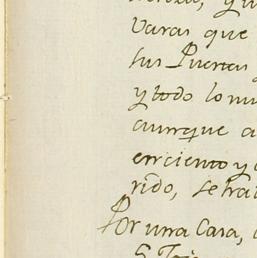 varas que
sus Puertas
y todo lo mu
aunque a
en ciento y
rido, se ha
Por una Casa,